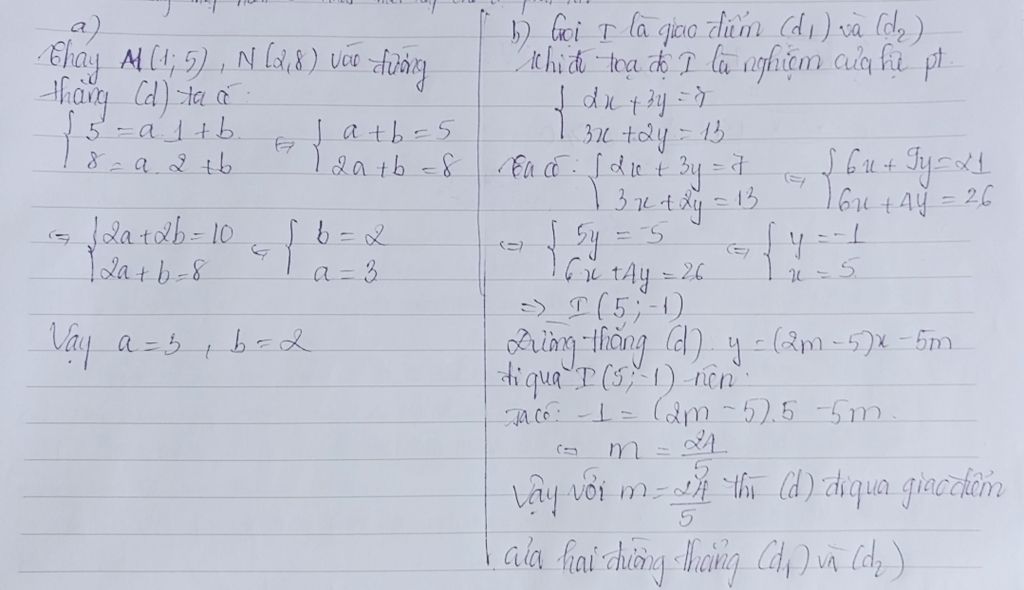 a)
Thay M(1; 5), N(2,8) vào đường
thẳng (d) ta có
{ 5 = a.1 + b ⇔ { a + b = 5
{ 8 = a.2 + b { 2a + b = 8
⇔ { 2a + 2b = 10 ⇔ { b = 2
{ 2a + b = 8 { a = 3
Vậy a = 3, b = 2
b) Gọi I là giao điểm (d₁) và (d₂)
khi đó toạ độ I là nghiệm của hệ pt.
{ 2x + 3y = 7
{ 3x + 2y = 13
Ta có: { 2x + 3y = 7 ⇔ { 6x + 9y = 21
{ 3x + 2y = 13 { 6x + 4y = 26
⇔ { 5y = -5 ⇔ { y = -1
{ 6x + 4y = 26 { x = 5
=> I(5; -1)
Đường thẳng (d) y = (2m - 5)x - 5m
đi qua I(5; -1) nên
Ta có: -1 = (2m - 5).5 - 5m
⇔ m = 24/5
Vậy với m = 24/5 thì (d) đi qua giao điểm
của hai đường thẳng (d₁) và (d₂)